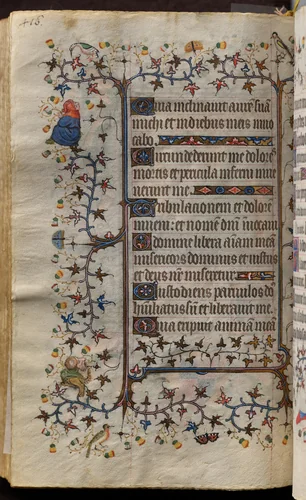 415
Quia inclinavit aurē suā
michi et in diebus meis invo
cabo.
Circumdederunt me dolore
mortis et pericula inferni inve
nerunt me.
Tribulacionem et dolorē
inveni: et nomē dn̄i invocavi
O domine libera aīam meā
misericors dominus et iustus
et deus nr̄ miseretur.
Custodiens parvulos dn̄s
humiliatus sū et liberavit me.
Quia eripuit animā meā